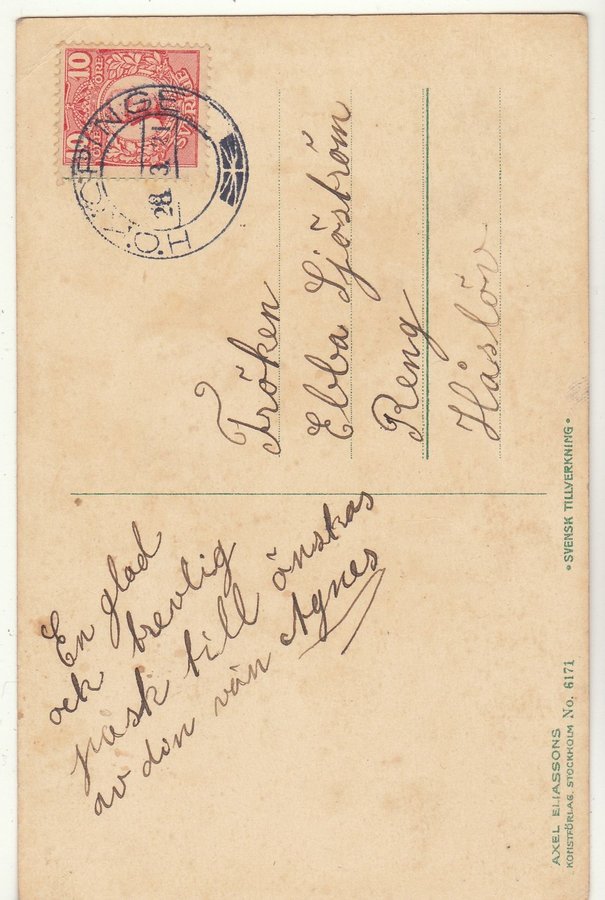 10
ÖRE
SVERIGE
28.3.21
Fröken
Ebba Sjöström
Reng
Håslöv
En glad
och trevlig
påsk till önskas
av din vän Agnes
• SVENSK TILLVERKNING •
AXEL ELIASSONS
KONSTFÖRLAG, STOCKHOLM No. 6171